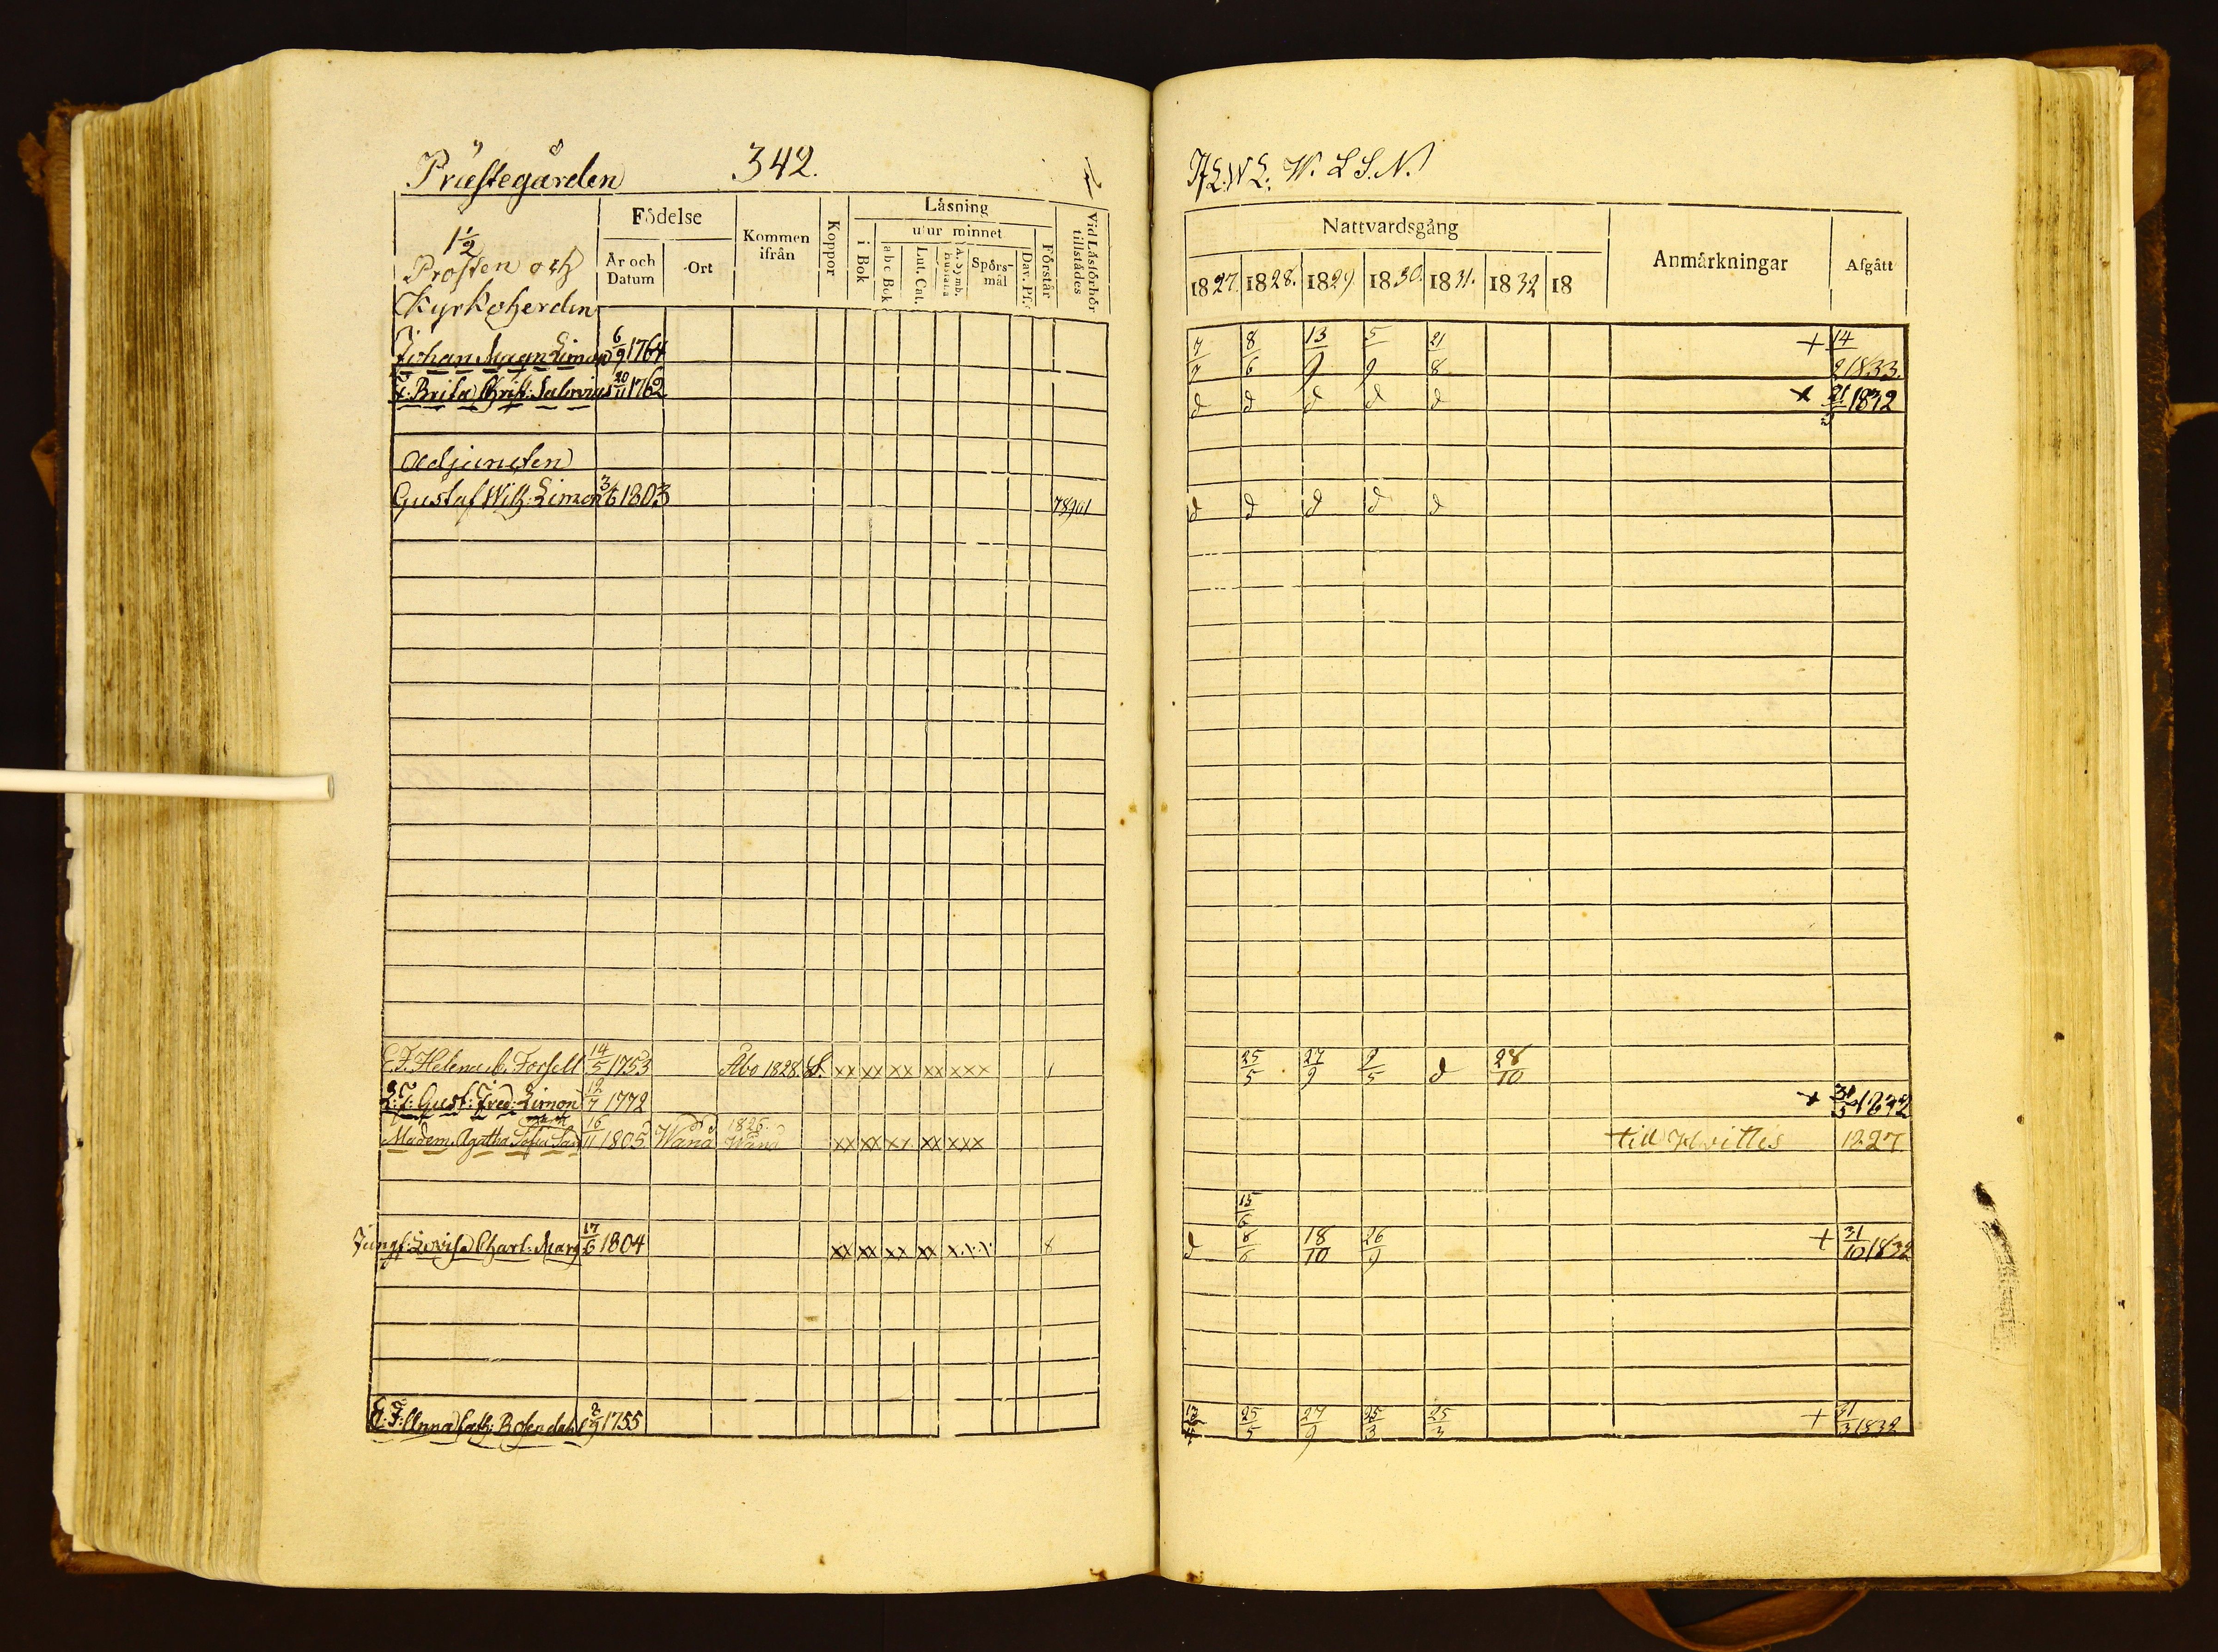 Prästegården 342.
1½
Prosten och
Kyrkoherden
Födelse
År och Datum
Ort
Kommen ifrån
Koppor
Låsning
i Bok
utur minnet
a b c Bok
Lut. Cat.
A. Symb.
Hustafla
Spörsmål
Dav. Ps.
Förstår
Vid Låsförhör tillstådes
Johan Magn Limon 6/9 1764
F: Brita Christ: Salovius 20/11 1762
Adjuncten
Gustaf Wilh: Limon 3/6 1803 78901
E. F. Helena C. Forsell 14/5 1753 Åbo 1828. S. xx xx xx xx xxx 1
Gust: Fred: Limon 12/7 1772
Madem Agatha Sofia 16/11 1805 Wånå 1826. Wånå xx xx xx xx xxx
Jungf: Lovisa Charl: Marg 17/6 1804 xx xx xx xx x.x.x 8
E. F: Anna Cath: Rosendahl 2/9 1755
W. L S. N.
Nattvardsgång
1827. 1828. 1829 1830. 1831. 1832 18
Anmårkningar
Afgått
7/7 8/6 13/9 5/9 21/8 + 14/2 1833.
d d d d d + 21/3 1832
d d d d d
25/5 27/9 2/5 d 28/10
+ 31/5 1832
till Hvittis 1827
15/6
d 8/6 18/10 26/9 + 31/10 1832
25/5 27/9 25/3 25/3 + 31/3 1832